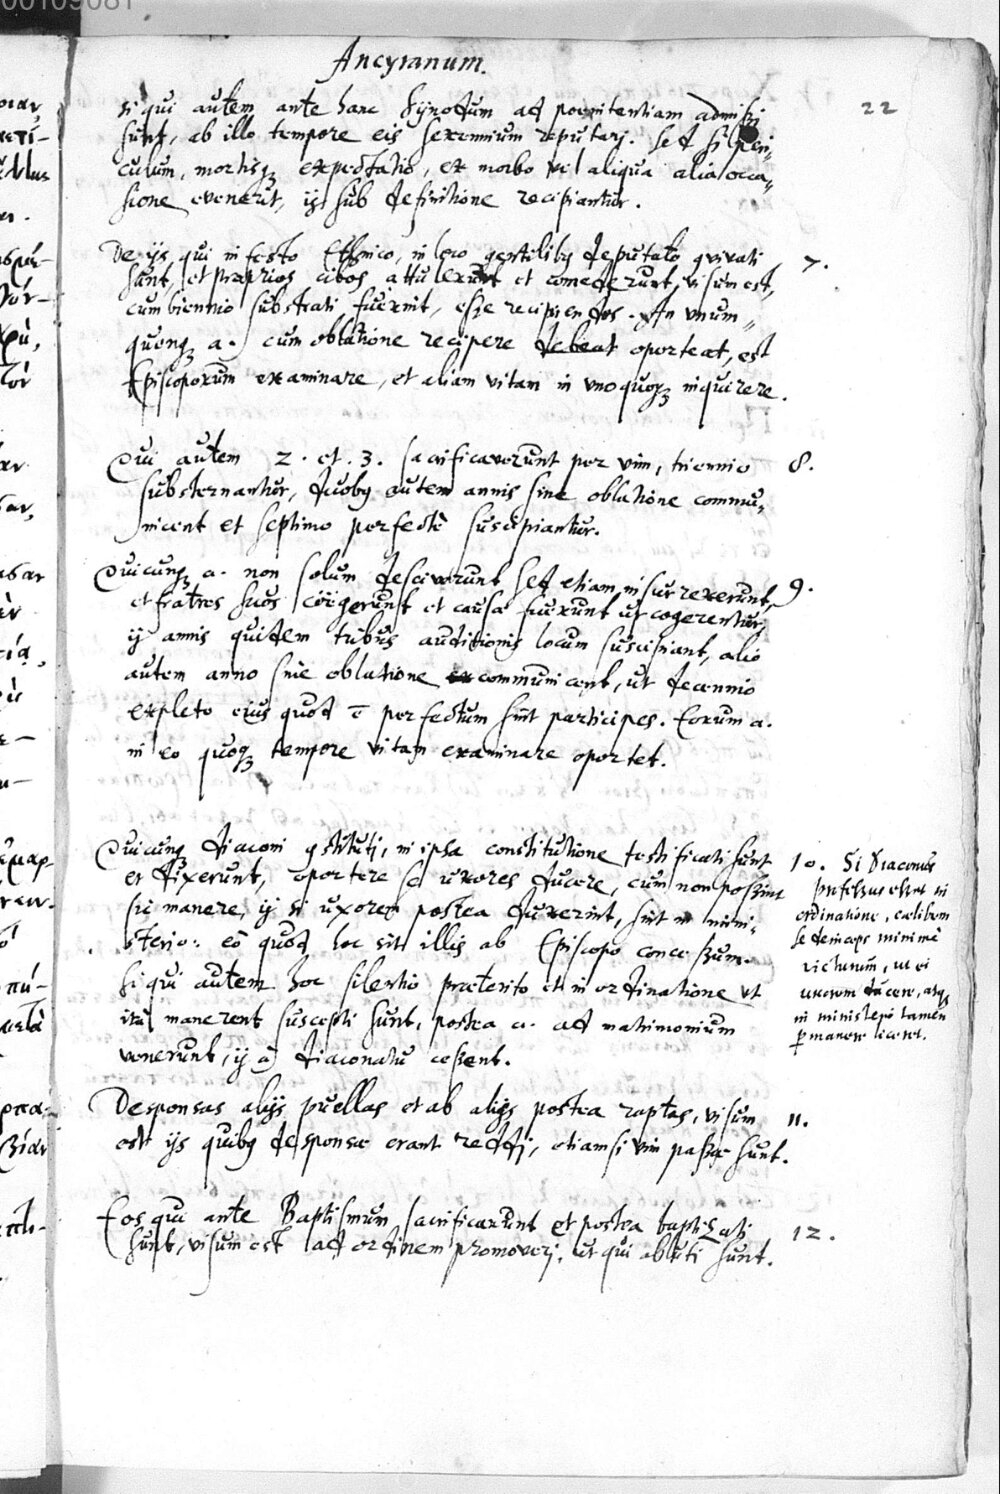 Ancyranum.
22
Si qui autem ante hanc Synodum ad poenitentiam admissi
sunt, ab illo tempore eis sexennium reputari. Sed si peri„
culum, mortisq; expectatio, ex morbo vel aliqua alia occa„
sione evenerit, ij sub definitione recipiantur.
De ijs, qui in festo Ethnico, in loco gentilibus deputato convivati 7.
sunt, et proprios cibos attulerunt et comederunt, visum est,
cum biennio substrati fuerint, esse recipiendos. An unum„
quenq; a. cum oblatione recipere debeat oporteat, est
Episcoporum examinare, et aliam vitam in unoquoq; inquirere.
Qui autem 2. et. 3. sacrificaverunt per vim, triennio 8.
substernantur, duobus autem annis sine oblatione commu„
nicent et septimo perfectè suscipiantur.
Quicunq; a. non solum desciverunt sed etiam insurrexerunt, 9.
et fratres suos coëgerunt et causa fuerunt ut cogerentur,
ij annis quidem tribus auditionis locum suscipiant, alio
autem anno sine oblatione communicent, ut decennio
expleto eius quod ē perfectum sint participes. Eorum a.
in eo quoq; tempore vitam examinare oportet.
Quicunq; diaconi constituti, in ipsa constitutione testificati sunt
et dixerunt, oportere se uxores ducere, cum non possint
sic manere, ij si uxores postea duxerint, sint in mini„
sterio: eò quod hoc sit illis ab Episcopo concessum.
Si qui autem hoc silentio praeterito et in ordinatione ut
ita manerent suscepti sunt, postea a. ad matrimonium
venerunt, ij à diaconatu cessent.
10. Si Diaconus
professus esset in
ordinatione, caelibem
se deinceps minimè
victurum, ut ei
uxorem ducere, atq;
in ministerio tamen
permanere liceret.
Desponsas alijs puellas et ab alijs postea raptas, visum 11.
est ijs quibus desponsae erant reddi, etiamsi vim passae sunt.
Eos qui ante Baptismum sacrificarunt et postea baptizati 12.
sunt, visum est ad ordinem promoveri, ut qui abluti sunt.